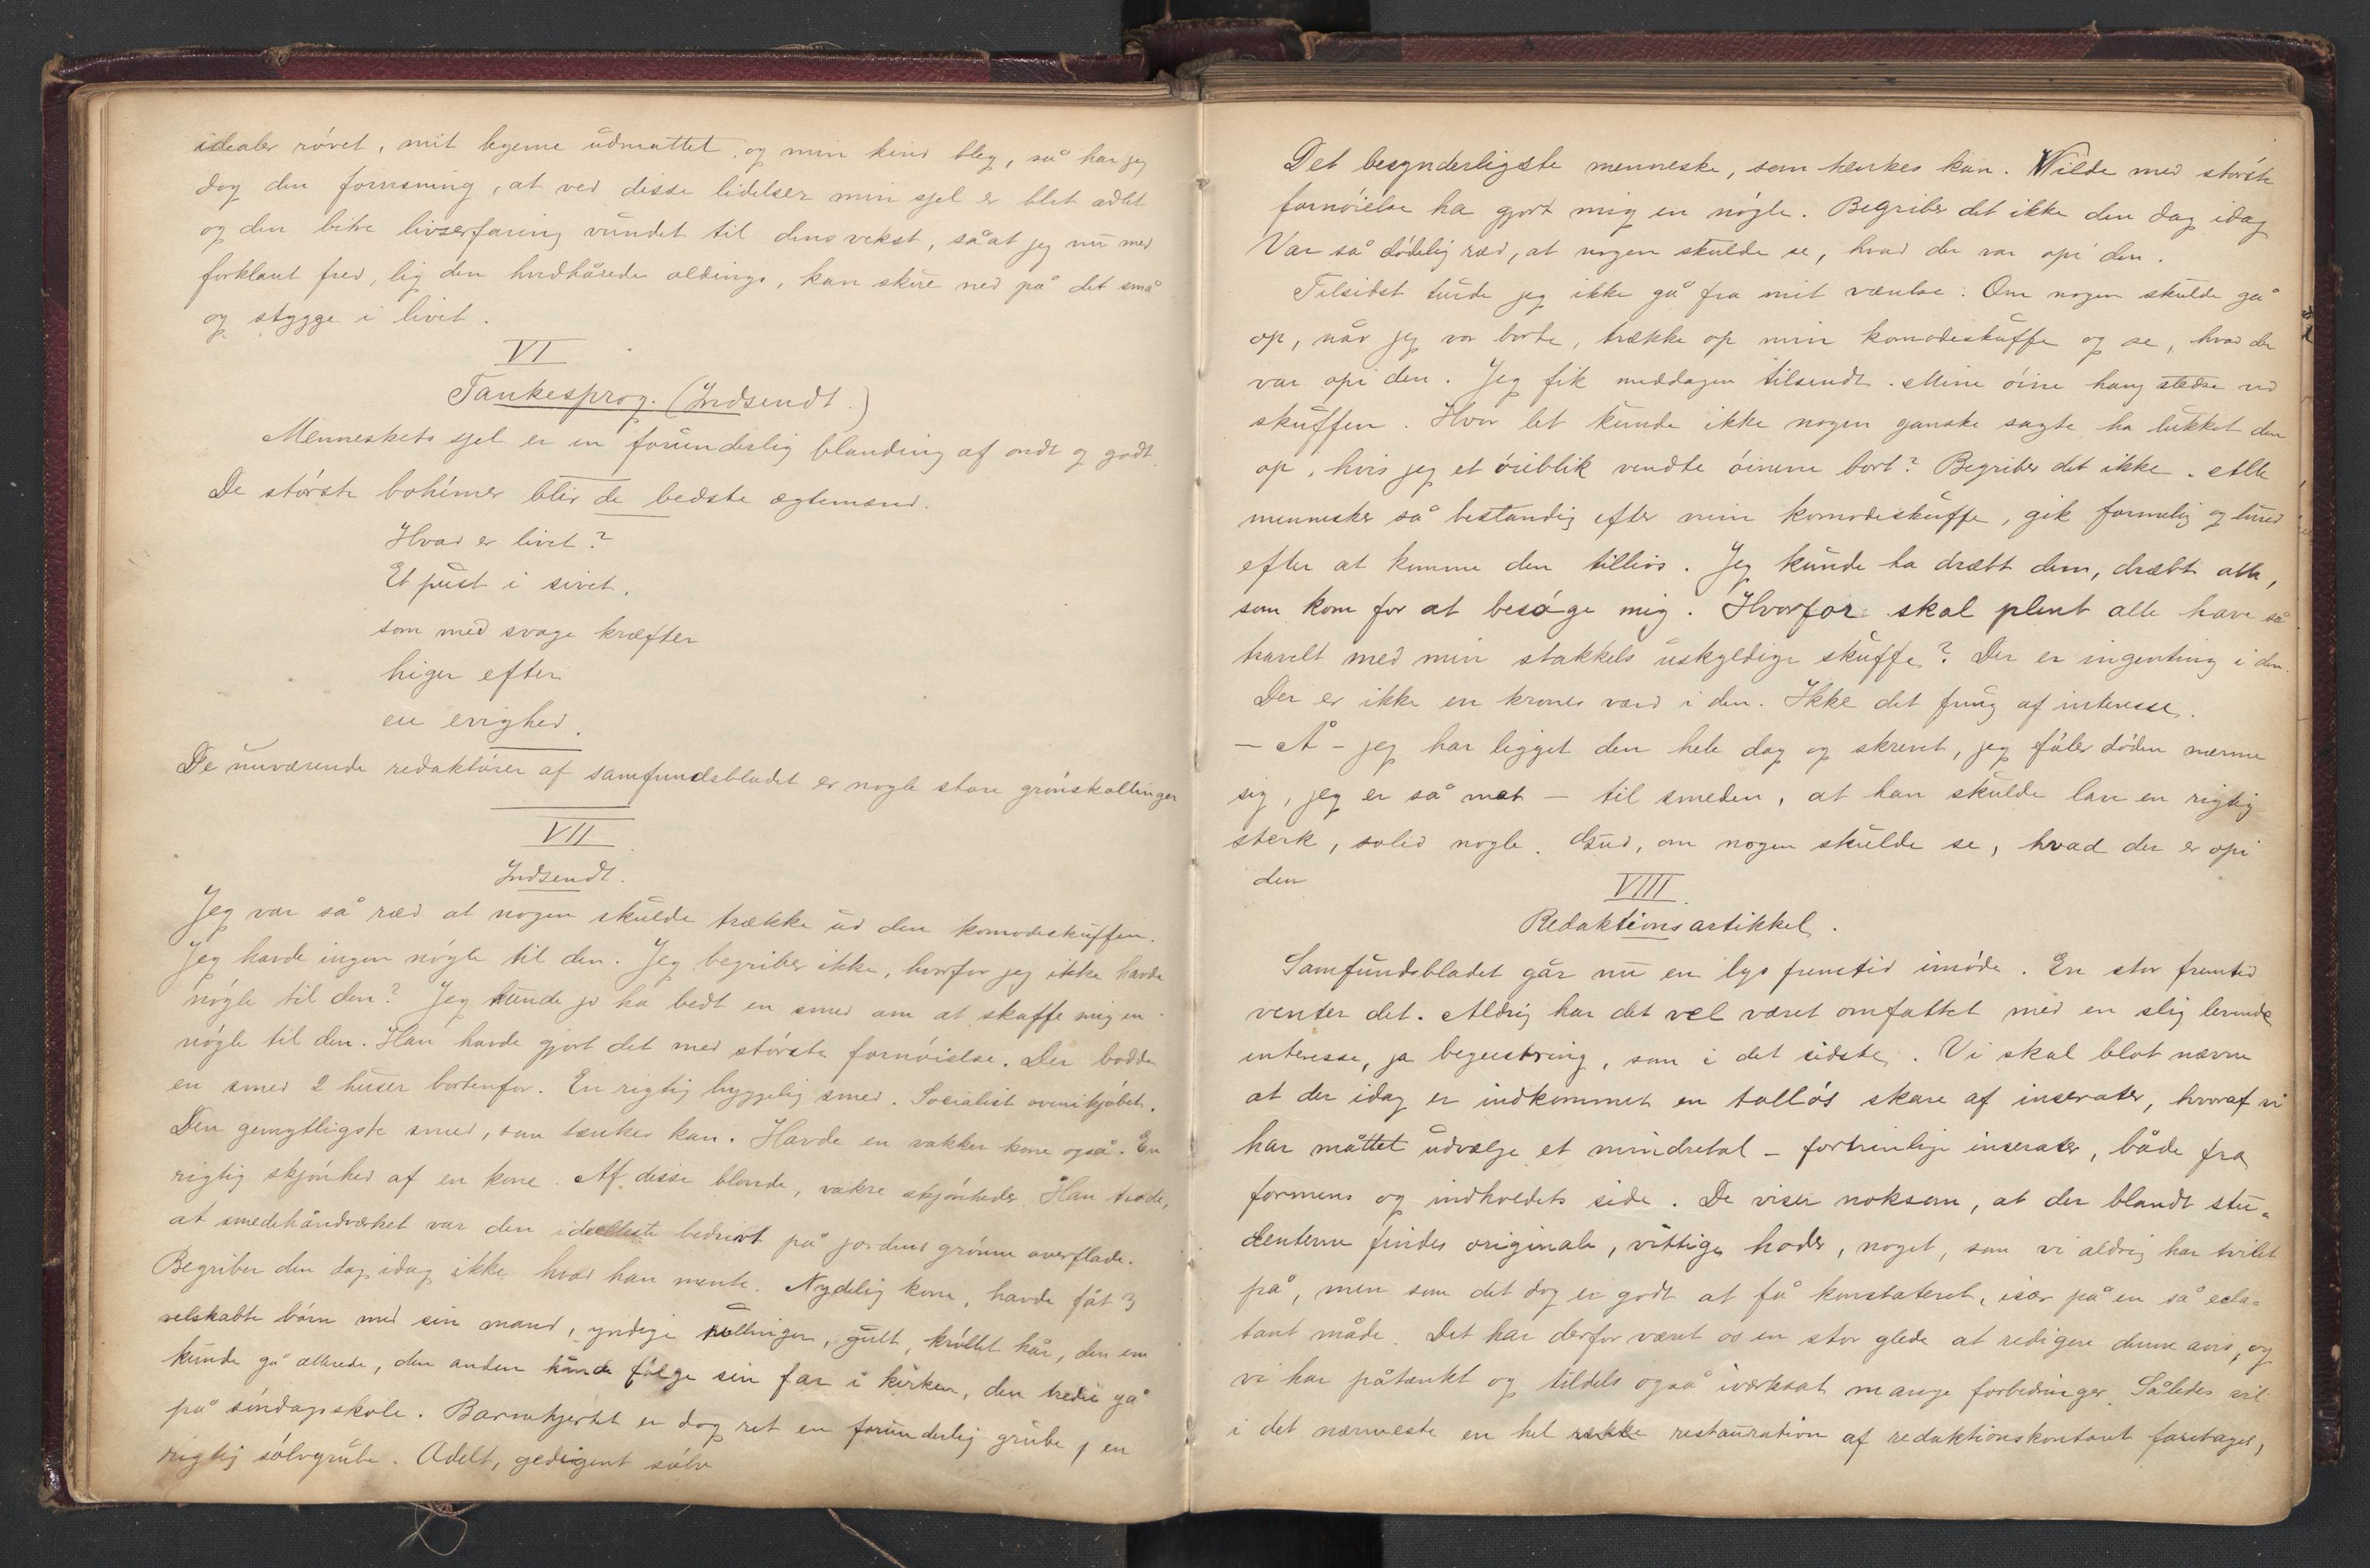 idealer røvet, mit legeme udmattet og min kind bleg, så har jeg
dog den forvisning, at ved disse lidelser min sjel er blet adlet
og den bitre livserfaring vundet til dens vekst, såat jeg nu med
forklaret fred, lig den hvidhårede oldings, kan skue ned på det små
og stygge i livet.
VI
Tankesprog. (Indsendt.)
Menneskets sjel er en forunderlig blanding af ondt og godt.
De største bohémer blir de bedste ægtemænd.
Hvad er livet?
Et pust i sivet,
som med svage kræfter
higer efter
en evighed.
De nuværende redaktører af samfundsbladet er nogle store grønskollinger
VII
Indsendt.
Jeg var så ræd at nogen skulde trække ud den komodeskuffen.
Jeg havde ingen nøgle til den. Jeg begriber ikke, hvorfor jeg ikke havde
nøgle til den? Jeg kunde jo ha bedt en smed om at skaffe mig en
nøgle til den. Han havde gjort det med største fornøielse. Der bodde
en smed 2 huser bortenfor. En rigtig hyggelig smed. Socialist ovenikjøbet.
Den gemytligste smed, som tænkes kan. Havde en vakker kone også. En
rigtig skjønhed af en kone. Af disse blonde, vakre skjønheder. Han trode,
at smedehåndværket var den ideelleste bedrift på jordens grønne overflade.
Begriber den dag idag ikke hvad han mente. Nydelig kone, havde fåt 3
velskabte børn med sin mand, yndige rollinger, gult, krøllet hår, den ene
kunde gå allerede, den anden kunde følge sin far i kirken, den tredie gå
på søndagsskole. Barnehjertet er dog ret en forunderlig grube, en
rigtig sølvgrube. Ædelt, gedigent sølv
Det besynderligste menneske, som tænkes kan. Vilde med største
fornøielse ha gjort mig en nøgle. Begriber det ikke den dag idag
Var så dødelig ræd, at nogen skulde se, hvad der var opi den.
Tilsidst turde jeg ikke gå fra mit værelse. Om nogen skulde gå
op, når jeg var borte, trække op min komodeskuffe og se, hvad der
var opi den. Jeg fik middagen tilsendt. Mine øine hang stedse ved
skuffen. Hvor let kunde ikke nogen ganske sagte ha lukket den
op, hvis jeg et øieblik vendte øinene bort? Begriber det ikke. Alle
mennesker så bestandig efter min komodeskuffe, gik formelig og lured
efter at komme den tillivs. Jeg kunde ha dræbt dem, dræbt alle,
som kom for at besøge mig. Hvorfor skal plent alle have så
travelt med min stakkels uskyldige skuffe? Der er ingenting i den.
Der er ikke en krones værd i den. Ikke det fnug af interesse.
– Å – jeg har ligget den hele dag og skrevet, jeg føler døden nærme
sig, jeg er så mat – til smeden, at han skulde lave en rigtig
sterk, solid nøgle. Gud, om nogen skulde se, hvad der er opi
den
VIII
Redaktionsartikkel.
Samfundsbladet går nu en lys fremtid imøde. En stor fremtid
venter det. Aldrig har det vel været omfattet med en slig levende
interesse, ja begeistring, som i det sidste. Vi skal blot nævne
at der idag er indkommet en talløs skare af inserater, hvoraf vi
har måttet udvælge et mindretal – fortrinlige inserater, både fra
formens og indholdets side. De viser noksom, at der blandt stu-
denterne findes originale, vittige hoder, noget, som vi aldrig har tvilet
på, men som det dog er godt at få konstateret, især på en så ecla-
tant måde. Det har derfor været os en stor glede at redigere denne avis, og
vi har påtænkt og tildels også iverksat mange forbedringer. Således vil
i det nærmeste en hel række restauration af redaktionskontoret foretages,